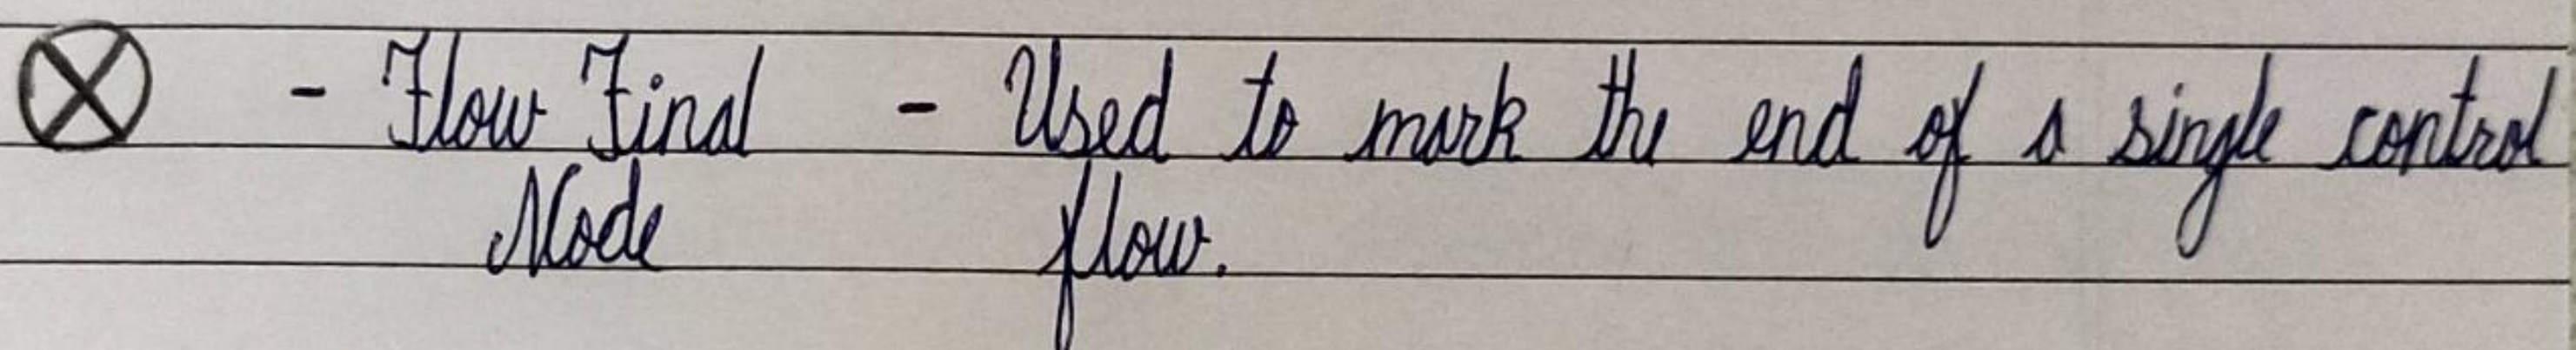 - Flow Final - Used to mark the end of a single control
Node flow.